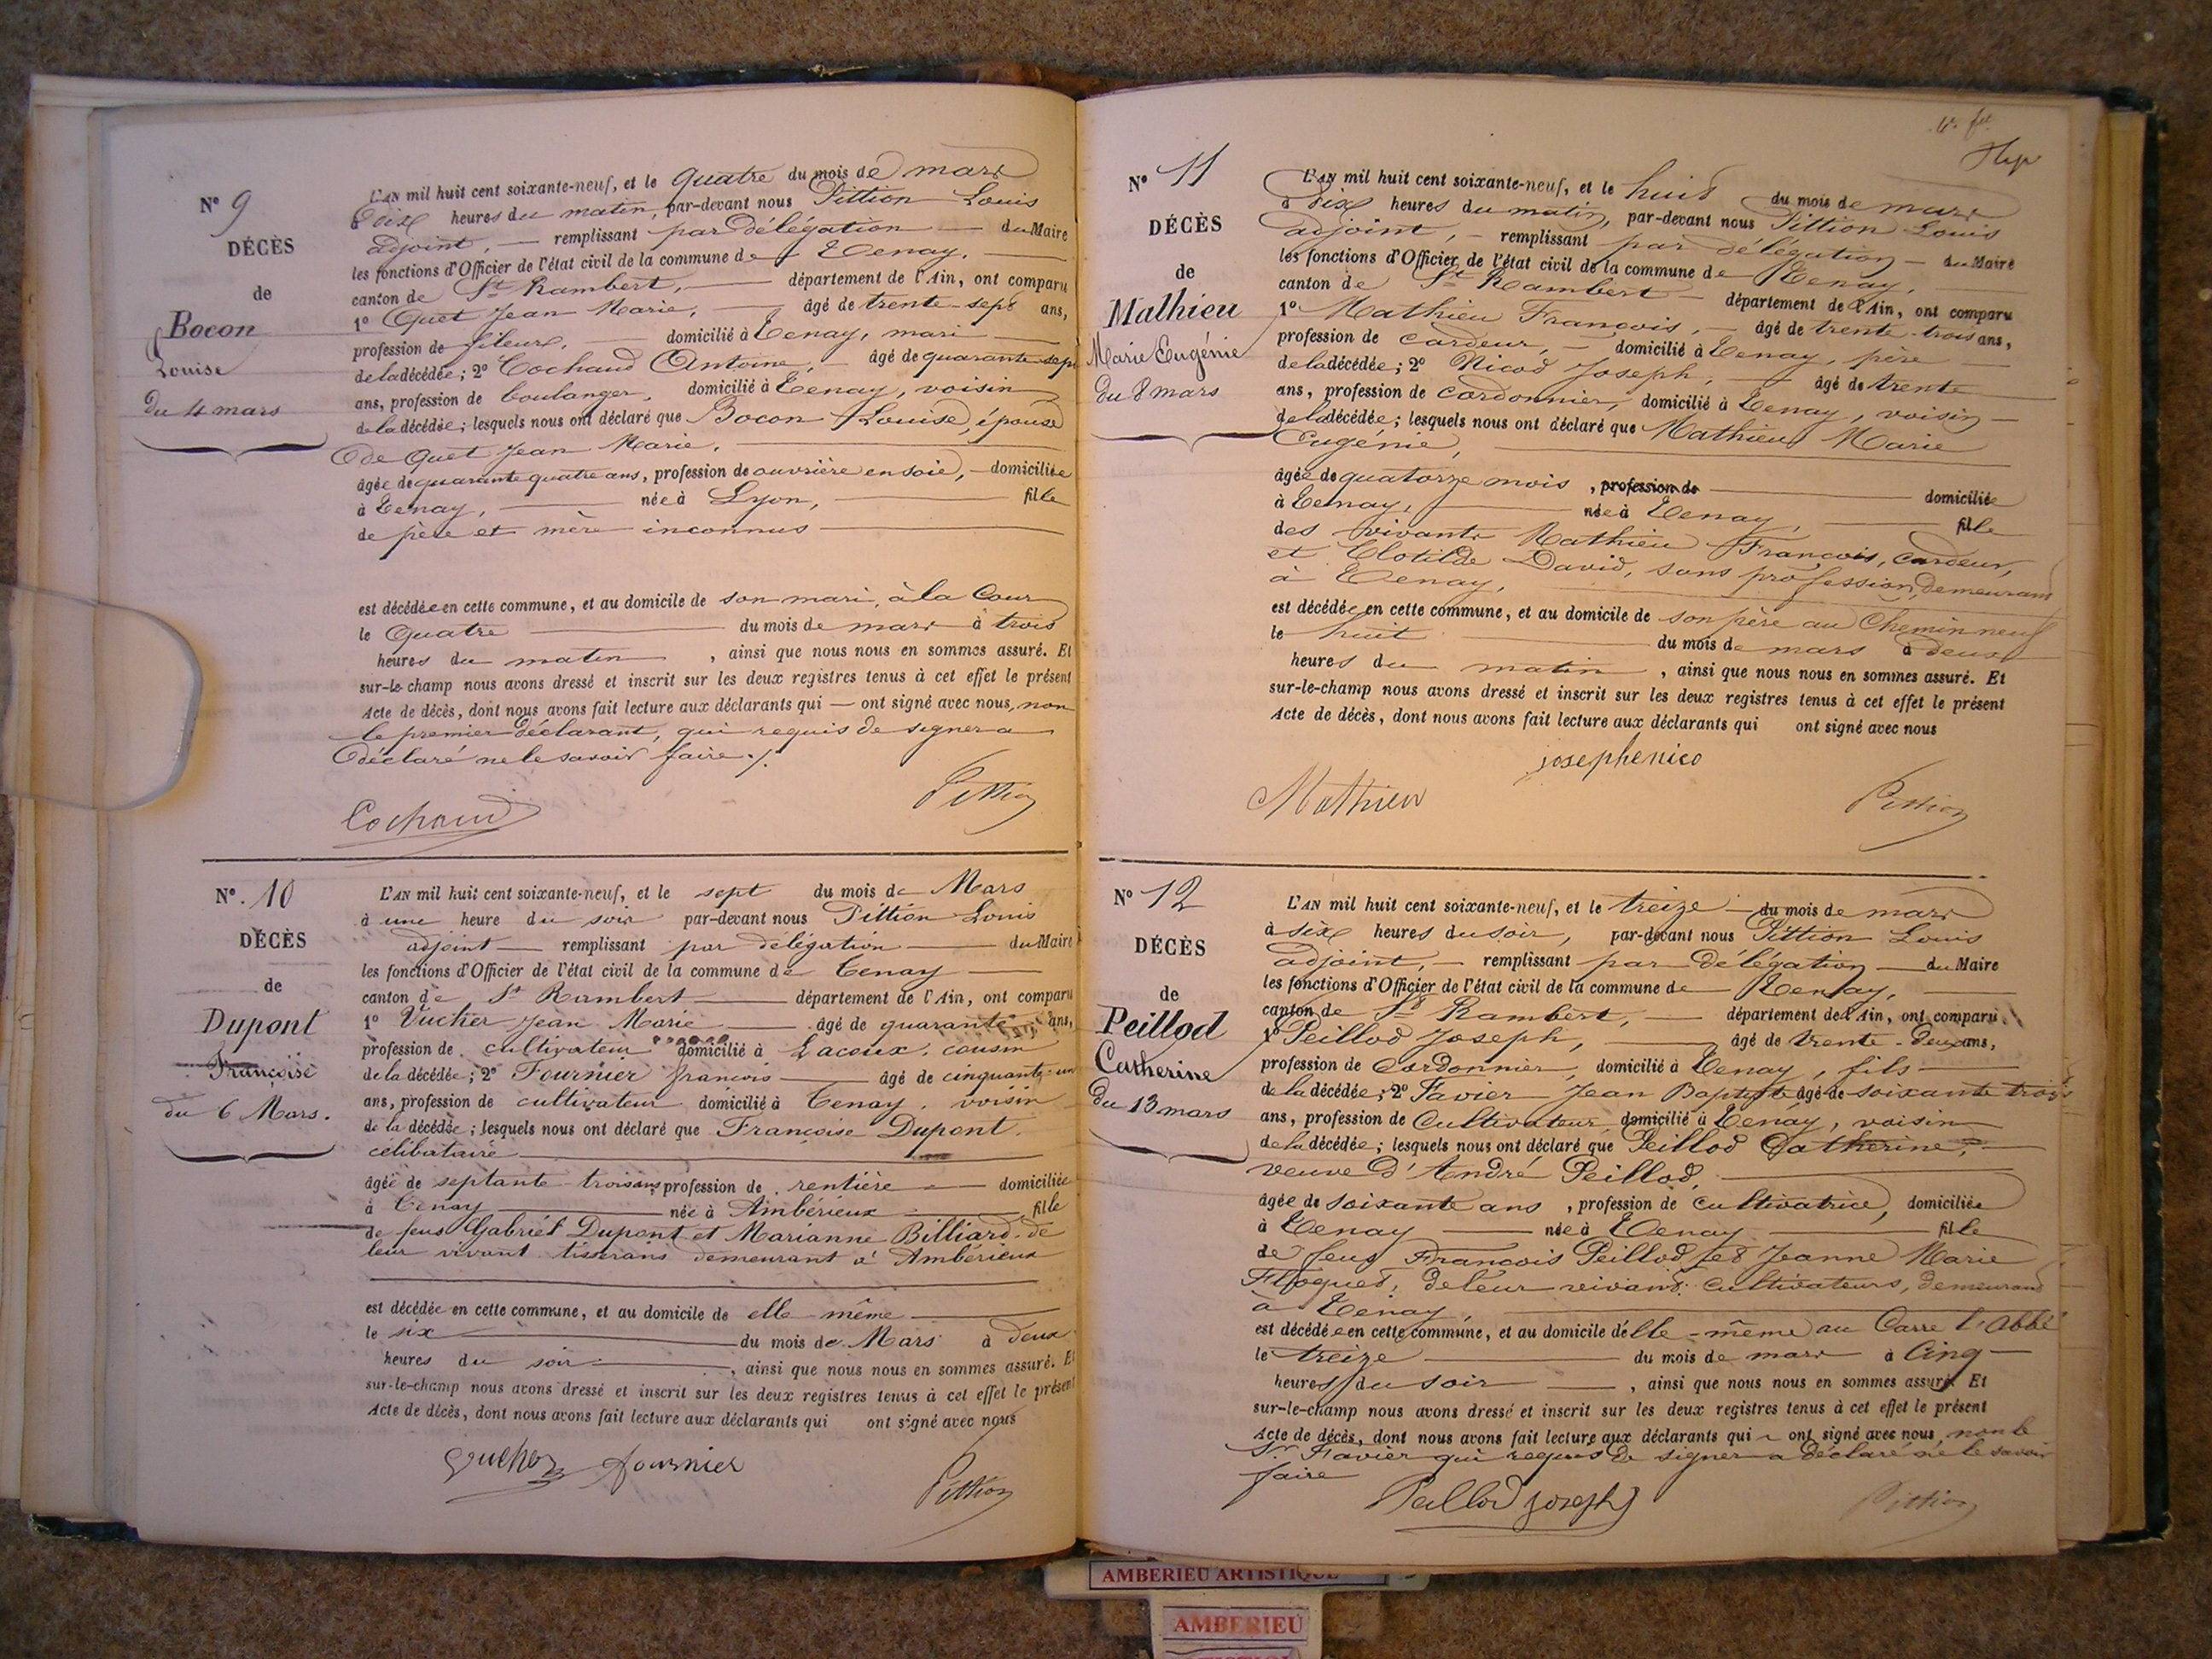 Nº 9
DÉCÈS
de
Bocon
Louise
du 4 mars
L'AN mil huit cent soixante-neuf, et le quatre du mois de mars
à dix heures du matin, par-devant nous Pittion Louis
adjoint, — remplissant par délégation — du Maire
les fonctions d'Officier de l'état civil de la commune de Tenay,
canton de St Rambert, département de l'Ain, ont comparu
1º Quet Jean Marie, âgé de trente-sept ans,
profession de fileur, domicilié à Tenay, mari
de la décédée; 2º Cochaud Antoine, âgé de quarante sept
ans, profession de boulanger, domicilié à Tenay, voisin
de la décédée; lesquels nous ont déclaré que Bocon Louise, épouse
de Quet Jean Marie,
âgée de quarante quatre ans, profession de ouvrière en soie, domiciliée
à Tenay, née à Lyon, fille
de père et mère inconnus
est décédée en cette commune, et au domicile de son mari, à la Cour
le quatre du mois de mars à trois
heures du matin, ainsi que nous nous en sommes assuré. Et
sur-le-champ nous avons dressé et inscrit sur les deux registres tenus à cet effet le présent
Acte de décès, dont nous avons fait lecture aux déclarants qui — ont signé avec nous, non
le premier déclarant, qui requis de signer a
déclaré ne le savoir faire ./.
Cochaud Pittion
Nº 10
DÉCÈS
de
Dupont
Françoise
du 6 Mars.
L'AN mil huit cent soixante-neuf, et le sept du mois de Mars
à une heure du soir par-devant nous Pittion Louis
adjoint — remplissant par délégation — du Maire
les fonctions d'Officier de l'état civil de la commune de Tenay
canton de St Rambert département de l'Ain, ont comparu
1º Vucher Jean Marie âgé de quarante ans,
profession de cultivateur domicilié à Lacoux, cousin
de la décédée; 2º Fournier françois âgé de cinquante-un
ans, profession de cultivateur domicilié à Tenay, voisin
de la décédée; lesquels nous ont déclaré que Françoise Dupont.
célibataire
âgée de septante-trois ans, profession de rentière domiciliée
à Tenay née à Ambérieux fille
de feus Gabriel Dupont et Marianne Billiard de
leur vivant tisserans demeurant à Ambérieux
est décédée en cette commune, et au domicile de elle-même
le six du mois de Mars à deux
heures du soir, ainsi que nous nous en sommes assuré. Et
sur-le-champ nous avons dressé et inscrit sur les deux registres tenus à cet effet le présent
Acte de décès, dont nous avons fait lecture aux déclarants qui ont signé avec nous
fournier Pittion
Nº 11
DÉCÈS
de
Mathieu
Marie Eugénie
du 8 mars
L'AN mil huit cent soixante-neuf, et le huit du mois de mars
à dix heures du matin, par-devant nous Pittion Louis
adjoint, — remplissant par délégation — du Maire
les fonctions d'Officier de l'état civil de la commune de Tenay,
canton de St Rambert département de l'Ain, ont comparu
1º Mathieu François, âgé de trente-trois ans,
profession de cardeur, domicilié à Tenay, père
de la décédée; 2º Nicod Joseph, âgé de trente
ans, profession de cordonnier, domicilié à Tenay, voisin
de la décédée; lesquels nous ont déclaré que Mathieu Marie
Eugénie,
âgée de quatorze mois, profession de domiciliée
à Tenay, née à Tenay, fille
des vivants Mathieu François, cardeur,
et Clotilde David, sans profession, demeurant
à Tenay,
est décédée en cette commune, et au domicile de son père au Chemin neuf
le huit du mois de mars à deux
heures du matin, ainsi que nous nous en sommes assuré. Et
sur-le-champ nous avons dressé et inscrit sur les deux registres tenus à cet effet le présent
Acte de décès, dont nous avons fait lecture aux déclarants qui ont signé avec nous
josephenico
Mathieu Pittion
Nº 12
DÉCÈS
de
Peillod
Catherine
du 13 mars
L'AN mil huit cent soixante-neuf, et le treize du mois de mars
à six heures du soir, par-devant nous Pittion Louis
adjoint, — remplissant par délégation — du Maire
les fonctions d'Officier de l'état civil de la commune de Tenay,
canton de St Rambert, département de l'Ain, ont comparu
1º Peillod Joseph, âgé de trente-deux ans,
profession de Cordonnier, domicilié à Tenay, fils
de la décédée; 2º Favier Jean Baptiste âgé de soixante trois
ans, profession de Cultivateur domicilié à Tenay, voisin
de la décédée; lesquels nous ont déclaré que Peillod Catherine,
veuve d'André Peillod,
âgée de soixante ans, profession de cultivatrice, domiciliée
à Tenay née à Tenay fille
de feus François Peillod et Jeanne Marie
de leur vivant cultivateurs, demeurant
à Tenay
est décédée en cette commune, et au domicile d'elle-même au Carre l'abbé
le treize du mois de mars à Cinq
heures du soir, ainsi que nous nous en sommes assuré. Et
sur-le-champ nous avons dressé et inscrit sur les deux registres tenus à cet effet le présent
Acte de décès, dont nous avons fait lecture aux déclarants qui ont signé avec nous non le
Sr Favier qui requis de signer a déclaré ne le savoir
faire
Peillod joseph Pittion
AMBERIEU ARTISTIQUE
AMBERIEU